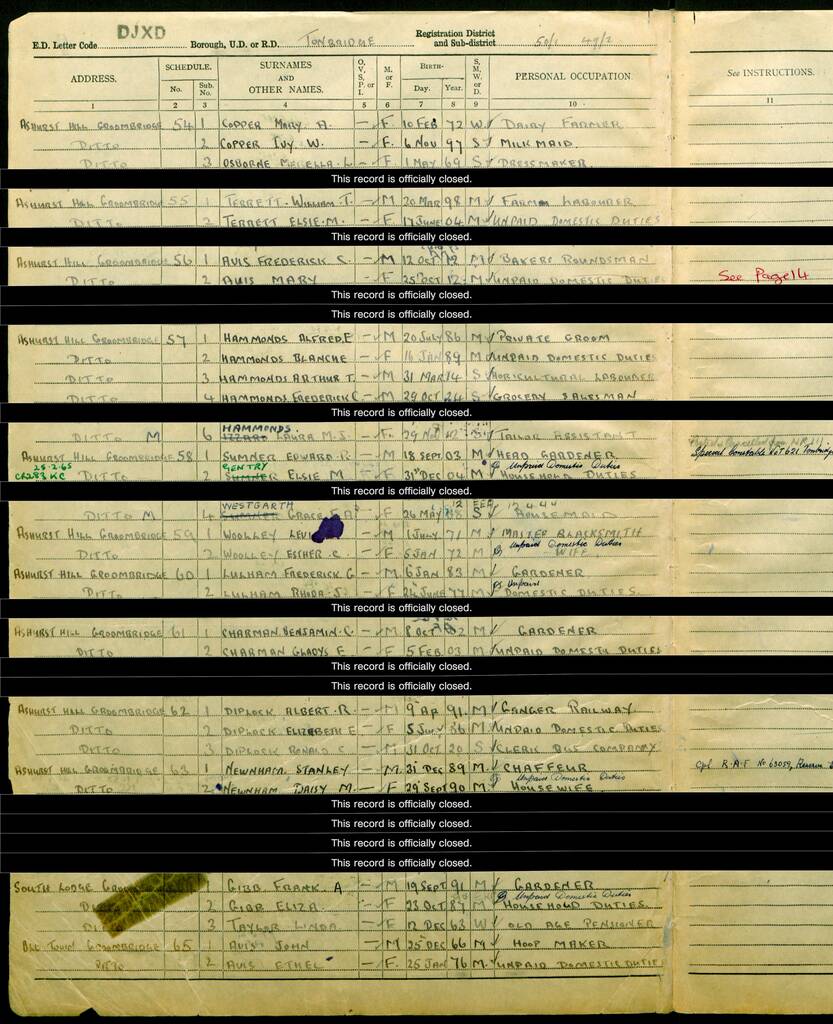 DJXD
E.D. Letter Code Borough, U.D. or R.D. TONBRIDGE Registration District and Sub-district 50/1 49/2
ADDRESS. SCHEDULE. No. Sub. No. SURNAMES AND OTHER NAMES. O., V., S., P. or I. M. or F. BIRTH- Day. Year. S., M., W. or D. PERSONAL OCCUPATION. See INSTRUCTIONS.
1 2 3 4 5 6 7 8 9 10 11
ASHURST HILL GROOMBRIDGE 54 1 COPPER MARY A. — F. 10 FEB 72 W DAIRY FARMER
DITTO 2 COPPER IVY W. — F. 6 NOV 97 S MILKMAID
DITTO 3 OSBORNE L. — F. 1 MAY 69 S DRESSMAKER.
This record is officially closed.
ASHURST HILL GROOMBRIDGE 55 1 TERRETT WILLIAM T. — M 20 MAR 98 M FARM LABOURER
DITTO 2 TERRETT ELSIE M. — F 17 JUNE 04 M UNPAID DOMESTIC DUTIES
This record is officially closed.
ASHURST HILL GROOMBRIDGE 56 1 AVIS FREDERICK C. — M 12 OCT 12 M BAKERS ROUNDSMAN
DITTO 2 AVIS MARY — F 25 OCT 12 M UNPAID DOMESTIC DUTIES See Page 14
This record is officially closed.
This record is officially closed.
ASHURST HILL GROOMBRIDGE 57 1 HAMMONDS ALFRED E — M 20 JULY 86 M PRIVATE GROOM
DITTO 2 HAMMONDS BLANCHE — F 16 JAN 89 M UNPAID DOMESTIC DUTIES
DITTO 3 HAMMONDS ARTHUR T. — M 31 MAR 14 S HORICULTURAL LABOURER
DITTO 4 HAMMONDS FREDERICK C — M 29 OCT 24 S GROCERY SALESMAN
This record is officially closed.
HAMMONDS
DITTO M 6 IZZARD LAURA M.J. — F. 29 NOV TAILOR ASSISTANT
ASHURST HILL GROOMBRIDGE 58 1 SUMNER EDWARD R. — M 18 SEPT 03 M HEAD GARDENER Special Constable 621. Tonbridge
25-2-65 GENTRY Unpaid Domestic Duties
CR283 KC DITTO 2 SUMNER ELSIE M — F 31 DEC 04 M HOUSEHOLD DUTIES
This record is officially closed.
WESTGARTH
DITTO M 4 SUMNER GRACE — F 26 MAY S HOUSEMAID
ASHURST HILL GROOMBRIDGE 59 1 WOOLLEY LEVI — M 1 JULY 71 M MASTER BLACKSMITH
Unpaid Domestic Duties
DITTO 2 WOOLLEY ESTHER C. — F 5 JAN 72 M WIFE
ASHURST HILL GROOMBRIDGE 60 1 LULHAM FREDERICK G — M 6 JAN 83 M GARDENER
Unpaid
DITTO 2 LULHAM RHODA J. — F 24 JUNE 77 M DOMESTIC DUTIES.
This record is officially closed.
ASHURST HILL GROOMBRIDGE 61 1 CHARMAN BENJAMIN C. — M 8 OCT 02 M GARDENER
DITTO 2 CHARMAN GLADYS E — F 5 FEB 03 M UNPAID DOMESTC DUTIES
This record is officially closed.
This record is officially closed.
ASHURST HILL GROOMBRIDGE 62 1 DIPLOCK ALBERT R. — M 9 AP 91 M GANGER RAILWAY
DITTO 2 DIPLOCK ELIZABETH E — F 5 JULY 86 M UNPAID DOMESTIC DUTIES
DITTO 3 DIPLOCK RONALD C. — M 31 OCT 20 S CLERK BUS COMPANY
ASHURST HILL GROOMBRIDGE 63 1 NEWNHAM STANLEY — M. 31 DEC 89 M. CHAFFEUR Cpl R.A.F No 63059, Reserve
Unpaid Domestic Duties
DITTO 2 NEWNHAM DAISY M. — F 29 SEPT 90 M. HOUSEWIFE
This record is officially closed.
This record is officially closed.
This record is officially closed.
This record is officially closed.
SOUTH LODGE 1 GIBB FRANK A — M 19 SEPT 91 M GARDENER
Unpaid Domestic Duties
2 GIBB ELIZA — F 23 OCT 87 M HOUSEHOLD DUTIES.
3 TAYLOR LINDA — F 12 DEC 63 W OLD AGE PENSIONER
GROOMBRIDGE 65 1 AVIS JOHN — M 25 DEC 66 M HOOP MAKER
DITTO 2 AVIS ETHEL — F. 25 JAN 76 M. UNPAID DOMESTIC DUTIE